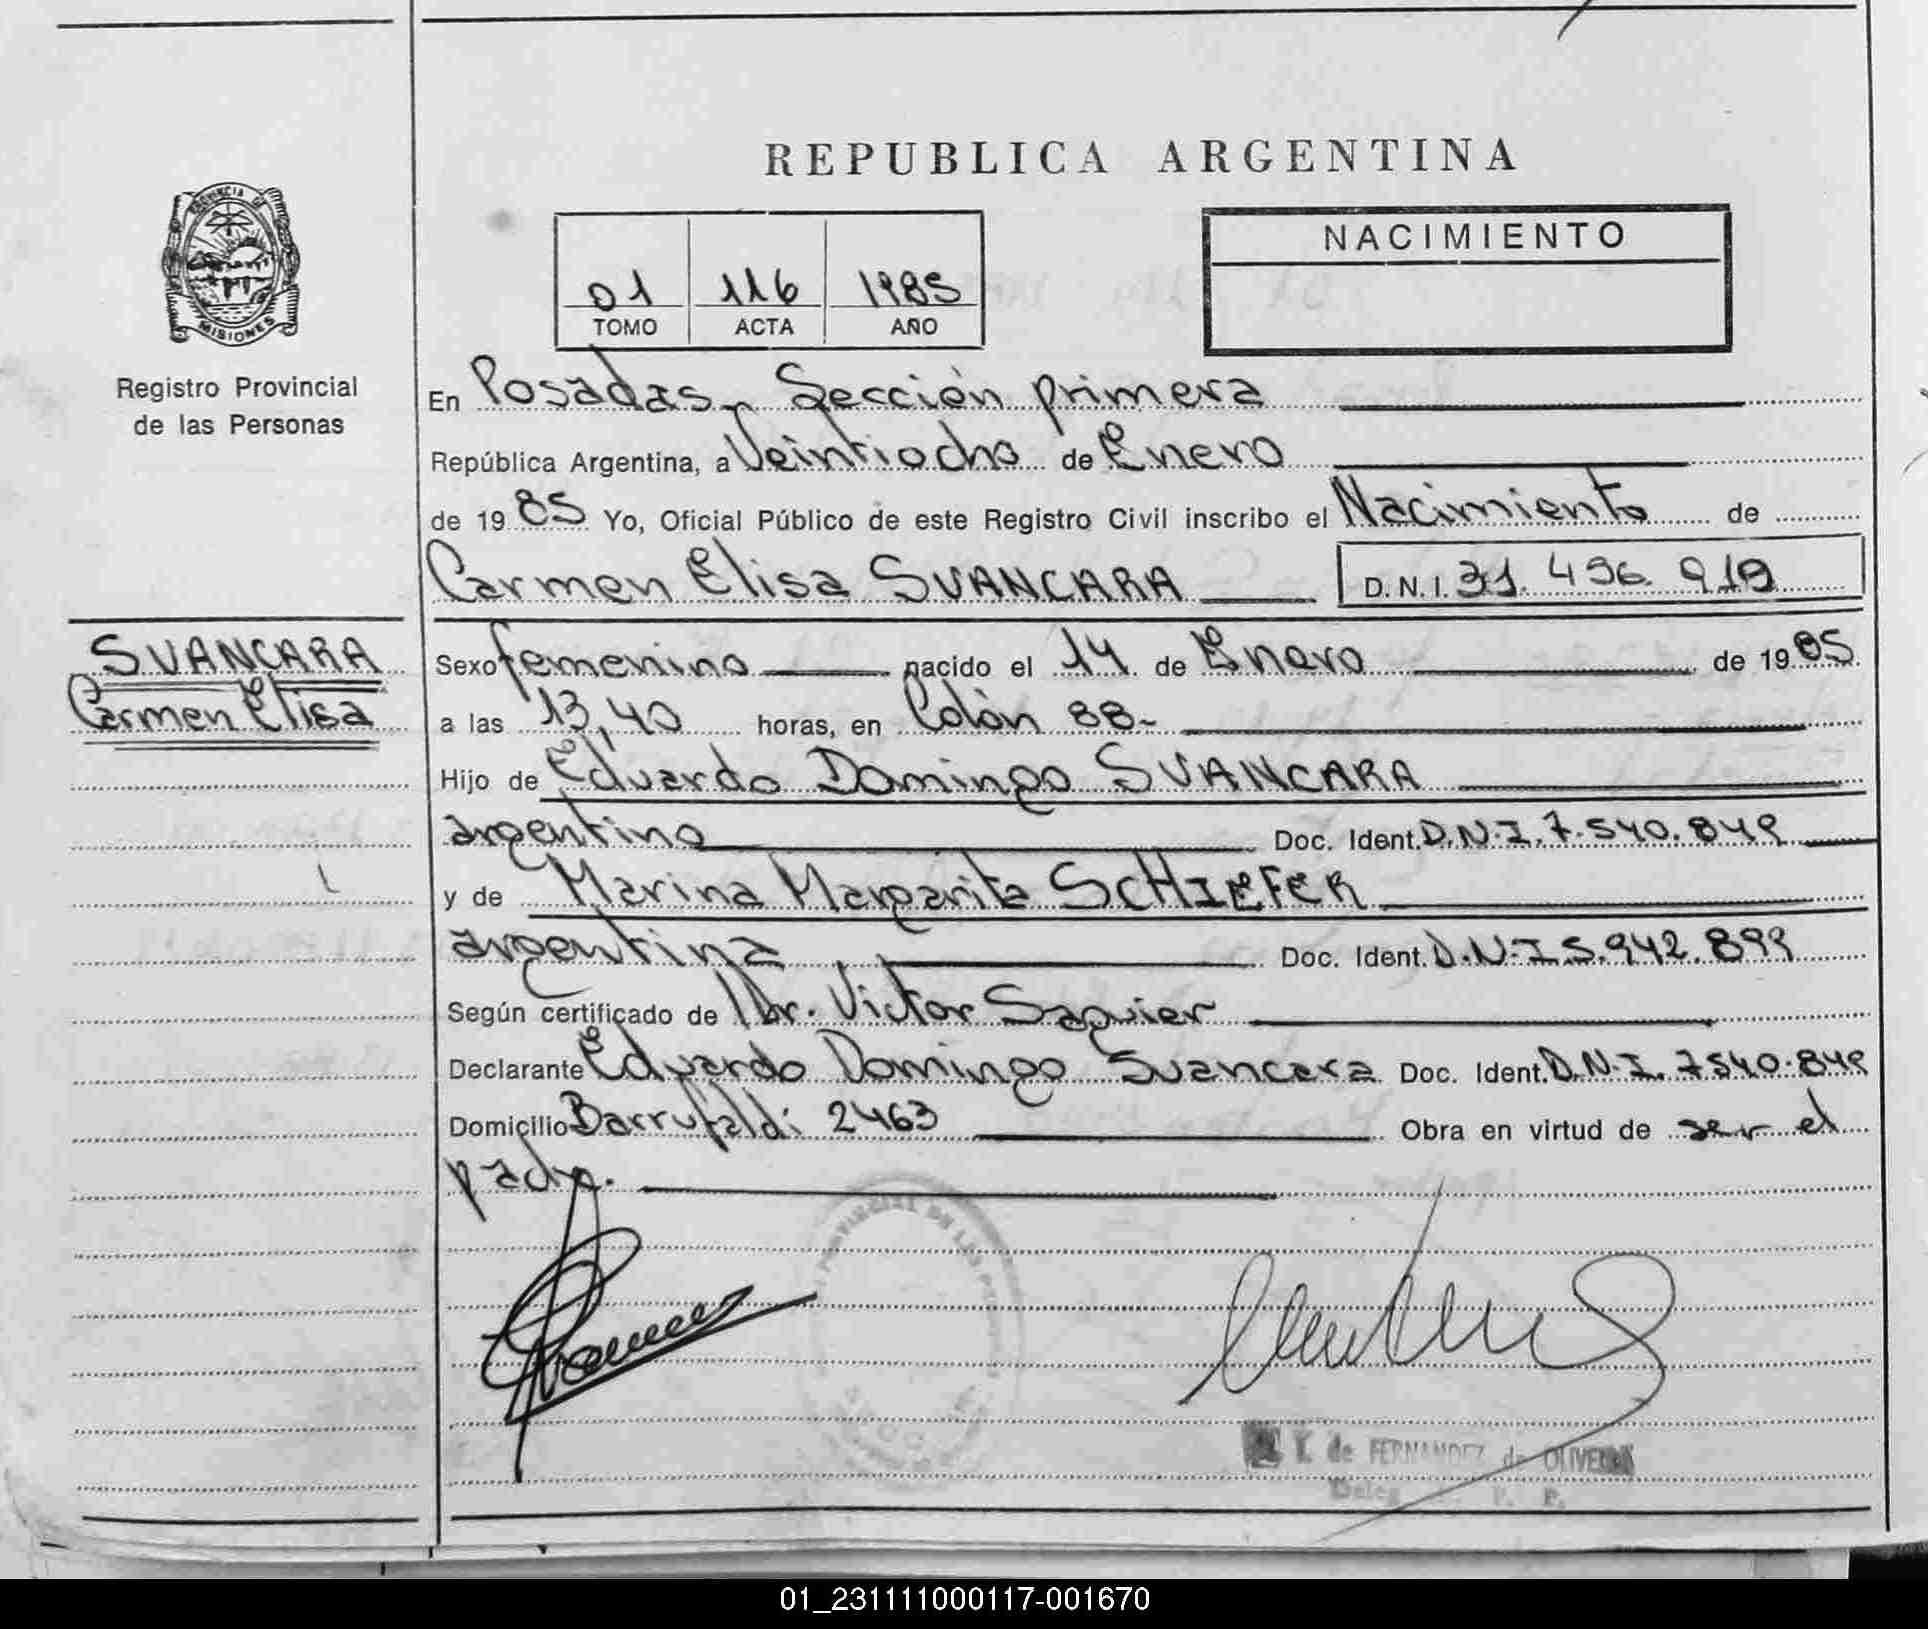 REPUBLICA ARGENTINA
PROVINCIA DE
MISIONES
Registro Provincial
de las Personas
01 116 1985
TOMO ACTA AÑO
NACIMIENTO
En Posadas, Sección primera
República Argentina, a Veintiocho de Enero
de 19 85 Yo, Oficial Público de este Registro Civil inscribo el Nacimiento de
Carmen Elisa SVANCARA D.N.I. 31.496.919
SVANCARA
Carmen Elisa
Sexo femenino nacido el 14 de Enero de 19 85
a las 13,40 horas, en Colón 88-
Hijo de Eduardo Domingo SVANCARA
argentino Doc. Ident. D.N.I. 7.540.849
y de Marina Margarita SCHIEFER
argentina Doc. Ident. D.N.I 5.942.899
Según certificado de Dr. Victor Saguier
Declarante Eduardo Domingo Svancara Doc. Ident. D.N.I. 7540.849
Domicilio Barrufaldi 2463 Obra en virtud de ser el
padre.
PROVINCIAL DE LAS
de FERNANDEZ de OLIVEIRA
01_231111000117-001670